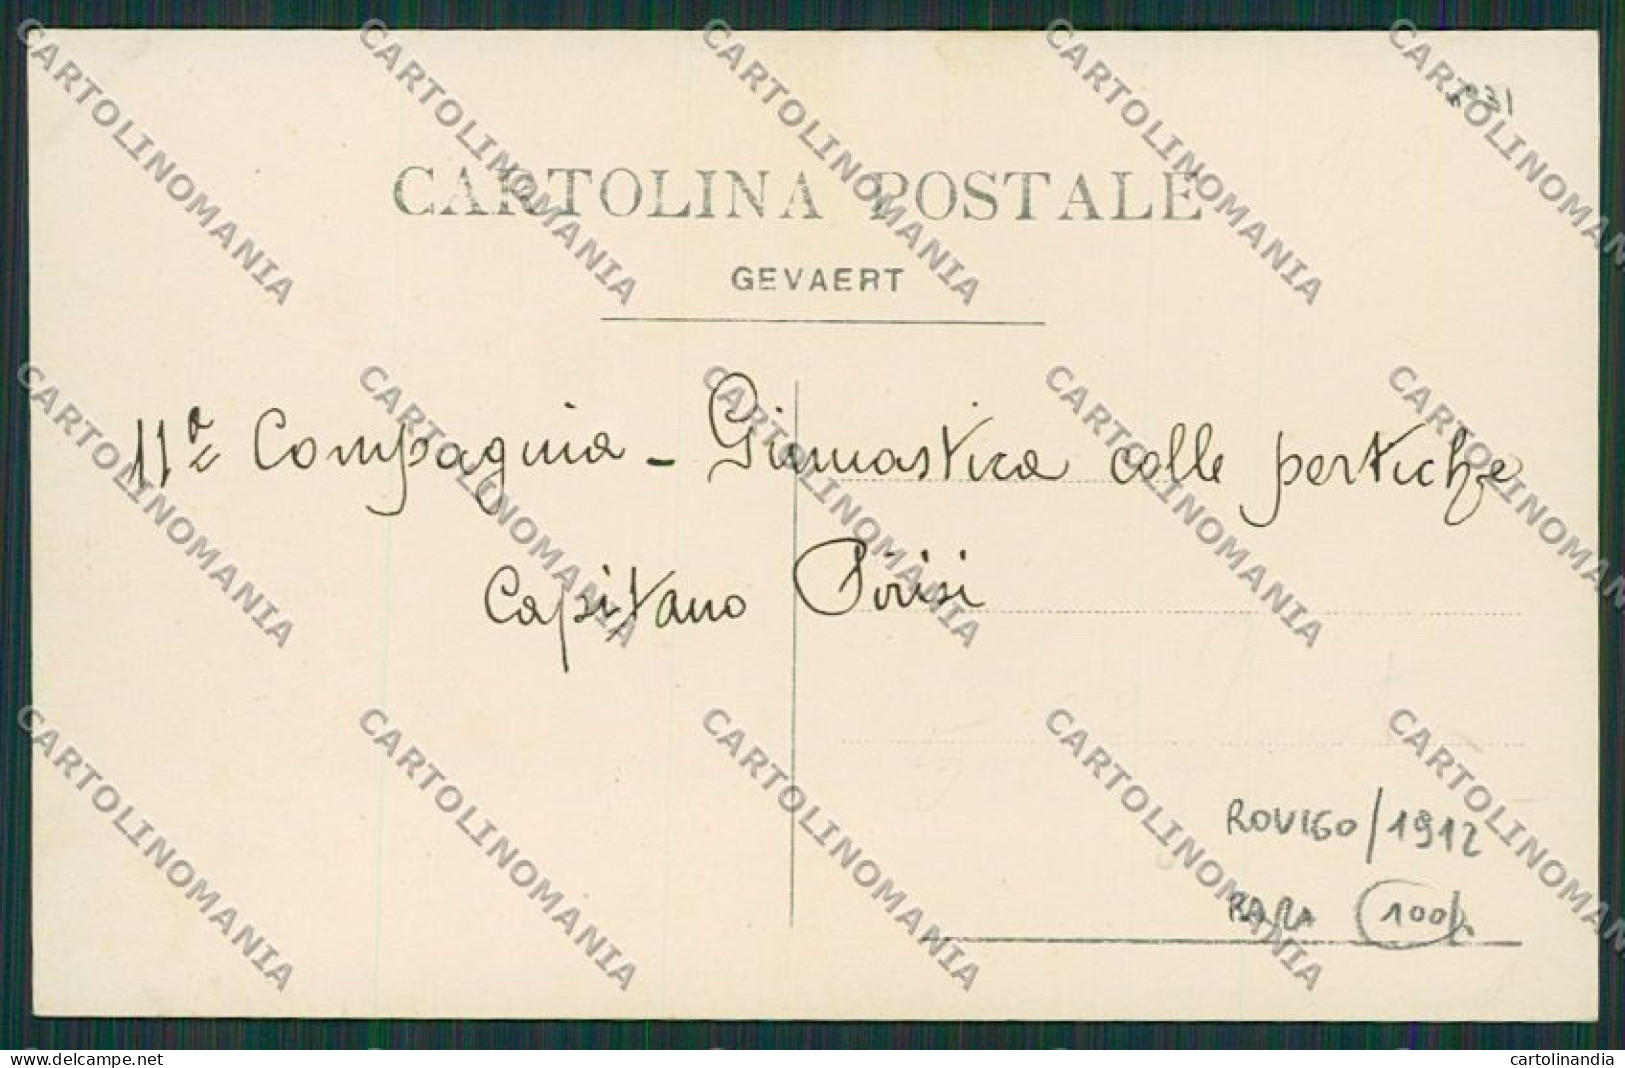 CARTOLINA POSTALE
GEVAERT
11ª Compagnia - Ginnastica colle pertiche
Capitano Pirisi
ROVIGO/1912
RARA 100
CARTOLINOMANIA
www.delcampe.net
cartolinandia